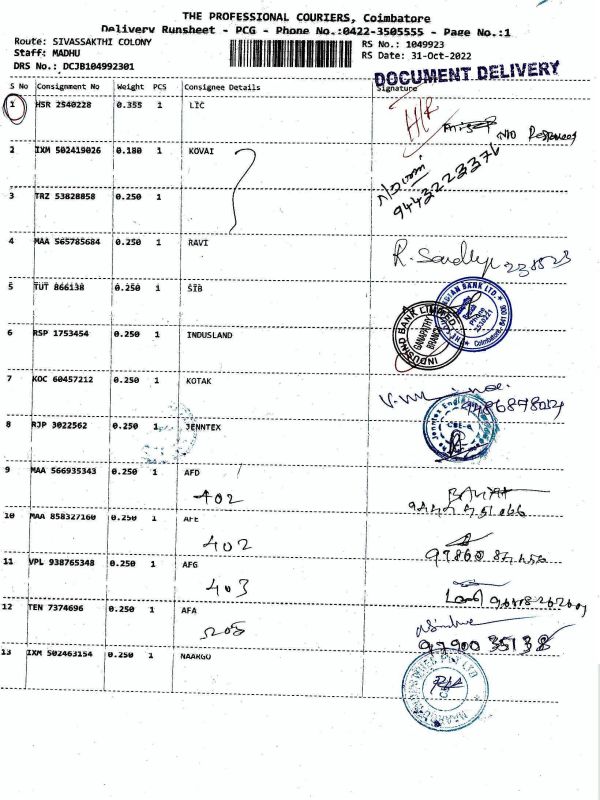 THE PROFESSIONAL COURIERS, Coimbatore
Delivery Runsheet - PCG - Phone No.:0422-3505555 - Page No.:1
Route: SIVASSAKTHI COLONY
Staff: MADHU
DRS No.: DCJB104992301
RS No.: 1049923
RS Date: 31-Oct-2022
DOCUMENT DELIVERY
S No Consignment No Weight PCS Consignee Details Signature
1 HSR 2540228 0.355 1 LIC
H/R
No
2 IXM 502419026 0.180 1 KOVAI
9443223376
3 TRZ 53828858 0.250 1
4 MAA 565785684 0.250 1 RAVI
R.
5 TUT 866138 0.250 1 SIB
INDIAN BANK LTD.
6 RSP 1753454 0.250 1 INDUSLAND
INDUSIND BANK LIMITED
GANAPATHY BRANCH
7 KOC 60457212 0.250 1 KOTAK
8 RJP 3022562 0.250 1 JENNTEX
CBE-6
9 MAA 566935343 0.250 1 AFD
402
10 MAA 858327160 0.250 1 AFE
402
11 VPL 938765348 0.250 1 AFG
403
12 TEN 7374696 0.250 1 AFA
205
97900 35138
13 IXM 502463154 0.250 1 NAARGO